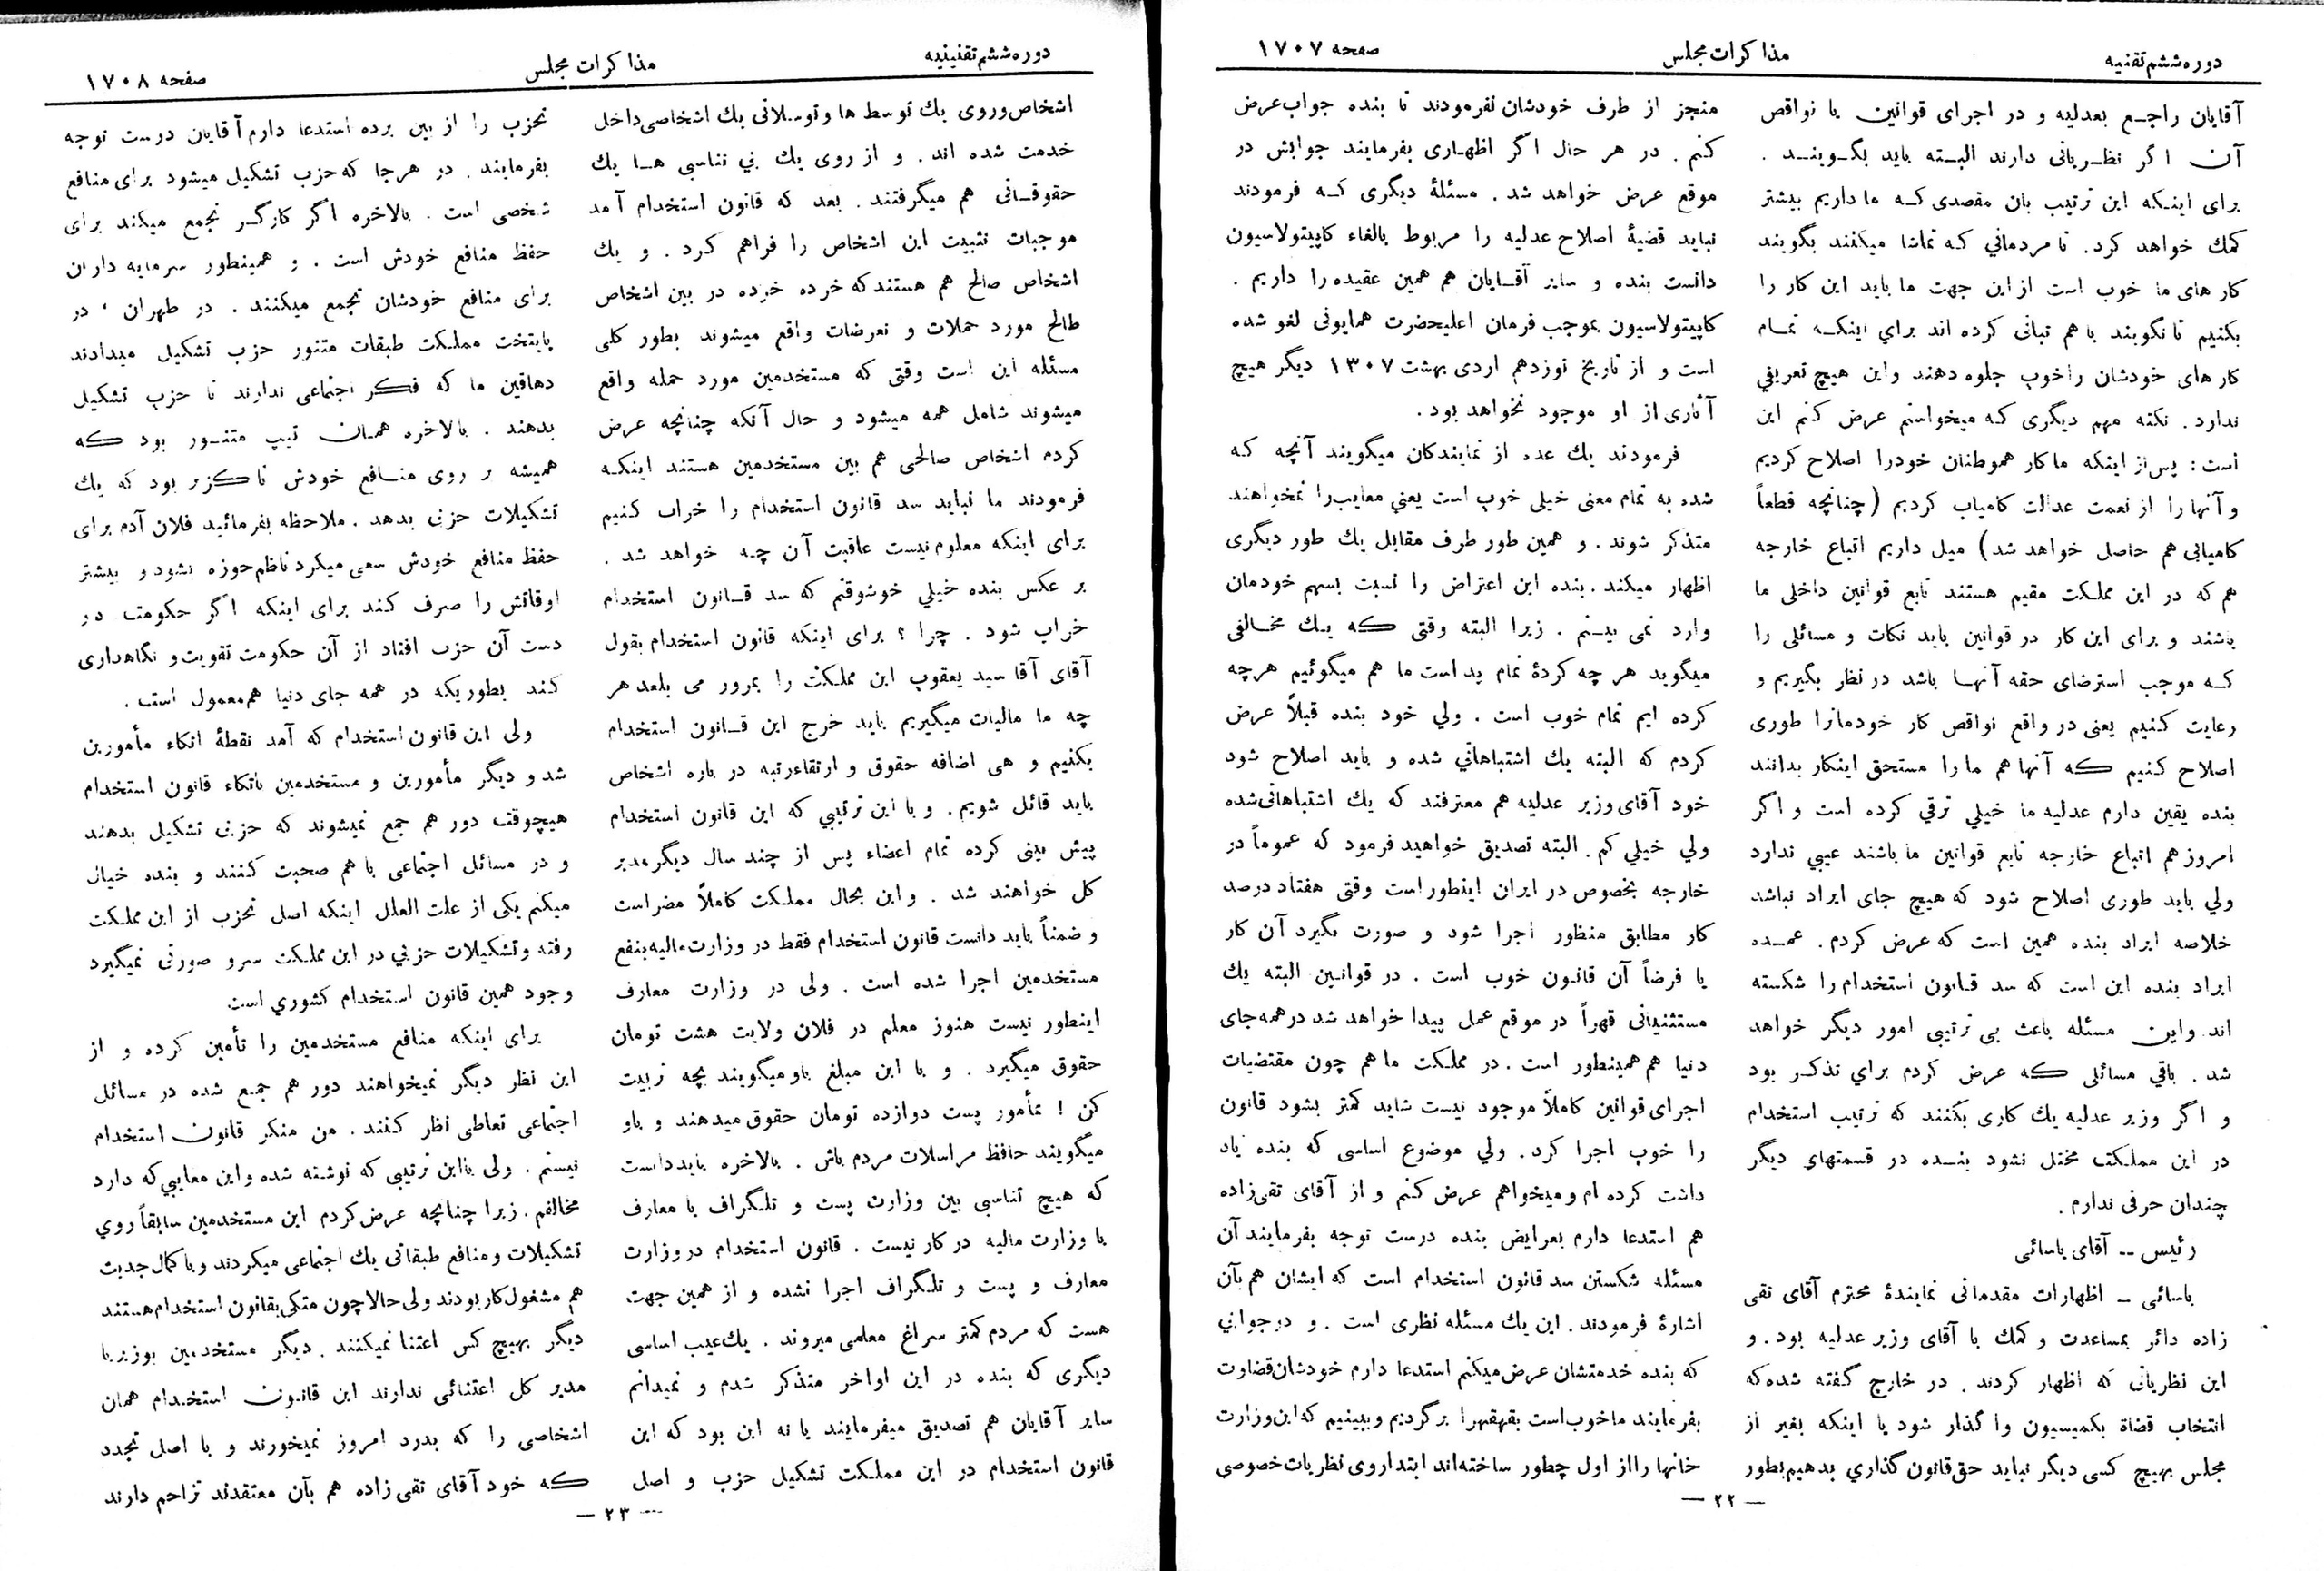 دوره ششم تقنیه
مذاکرات مجلس
صفحه ۱۷۰۷
آقایان راجع بعدلیه و در اجرای قوانین یا نواقص
آن اگر نظریاتی دارند البته باید بگویند .
برای اینکه این ترتیب بان مقصدی که ما داریم بیشتر
کمک خواهد کرد. تا مردمانی که تماشا میکنند بگویند
کار های ما خوب است از این جهت ما باید این کار را
بکنیم تا نگویند با هم تبانی کرده اند براي اینکه تمام
کار های خودشان را خوب جلوه دهند واین هیچ تعریفي
ندارد . نکته مهم دیگری که میخواستم عرض کنم این
است : پس از اینکه ما کار هموطنان خودرا اصلاح کردیم
و آنها را از نعمت عدالت کامیاب کردیم ( چنانچه قطعاً
کامیابی هم حاصل خواهد شد) میل داریم اتباع خارجه
هم که در این مملکت مقیم هستند تابع قوانین داخلی ما
باشند و برای این کار در قوانین باید نکات و مسائلی را
که موجب استرضای حقه آنها باشد در نظر بگیریم و
رعایت کنیم یعنی در واقع نواقص کار خودمانرا طوری
اصلاح کنیم که آنها هم ما را مستحق اینکار بدانند
بنده یقین دارم عدلیه ما خیلي ترقي کرده است و اگر
امروز هم اتباع خارجه تابع قوانین ما باشند عیبي ندارد
ولي باید طوری اصلاح شود که هیچ جای ایراد نباشد
خلاصه ایراد بنده همین است که عرض کردم . عمده
ایراد بنده این است که سد قانون استخدام را شکسته
اند واین مسئله باعث بی ترتیبی امور دیگر خواهد
شد . باقي مسائلی که عرض کردم براي تذکر بود
و اگر وزیر عدلیه یك کاری بکنند که ترتیب استخدام
در این مملکت مختل نشود بنده در قسمتهاي دیگر
چندان حرفی ندارم .
رئیس -- آقای یاسائی
یاسائی - اظهارات مقدماتی نمایندۀ محترم آقای تقی
زاده دائر بمساعدت و کمك با آقای وزیر عدلیه بود . و
این نظریاتی که اظهار کردند . در خارج گفته شده که
انتخاب قضاة بکمیسیون وا گذار شود یا اینکه بغیر از
مجلس بهیچ کسی دیگر نباید حق قانون گذاري بدهیم بطور
منجز از طرف خودشان نفرمودند تا بنده جواب عرض
کنم . در هر حال اگر اظهاری بفرمایند جوابش در
موقع عرض خواهد شد . مسئلۀ دیگری که فرمودند
نباید قضیۀ اصلاح عدلیه را مربوط بالغاء کاپیتولاسیون
دانست بنده و سایر آقایان هم همین عقیده را داریم .
کاپیتولاسیون بموجب فرمان اعلیحضرت همایونی لغو شده
است و از تاریخ نوزدهم اردی بهشت ۱۳۰۷ دیگر هیچ
آثاری از او موجود نخواهد بود .
فرمودند یك عده از نمایندکان میگویند آنچه که
شده به تمام معنی خیلی خوب است یعني معایب را نمخواهند
متذکر شوند . و همین طور طرف مقابل یك طور دیگری
اظهار میکند . بنده این اعتراض را نسبت بسهم خودمان
وارد نمی بینم . زیرا البته وقتی که یك مخالفی
میگوید هر چه کردۀ تمام بد است ما هم میگوئیم هرچه
کرده ایم تمام خوب است . ولي خود بنده قبلاً عرض
کردم که البته یك اشتباهاتي شده و باید اصلاح شود
خود آقای وزیر عدلیه هم معترفند که یك اشتباهاتی شده
ولي خیلي کم . البته تصدیق خواهید فرمود که عموماً در
خارجه بخصوص در ایران اینطور است وقتی هفتاد درصد
کار مطابق منظور اجرا شود و صورت بگیرد آن کار
یا فرضاً آن قانون خوب است . در قوانین البته یك
مستثنیاتی قهراً در موقع عمل پیدا خواهد شد در همه جای
دنیا هم همینطور است . در مملکت ما هم چون مقتضیات
اجرای قوانین کاملاً موجود نیست شاید کمتر بشود قانون
را خوب اجرا کرد . ولي موضوع اساسی که بنده یاد
داشت کرده ام و میخواهم عرض کنم و از آقای تقی زاده
هم استدعا دارم بعرایض بنده درست توجه بفرمایند آن
مسئله شکستن سد قانون استخدام است که ایشان هم بآن
اشارۀ فرمودند . این یك مسئله نظری است . و در جوابي
که بنده خدمتشان عرض میکنم استدعا دارم خودشان قضاوت
بفرمایند ما خوب است بقهقهرا برگردیم و ببینیم که این وزارت
خانها را از اول چطور ساخته اند ابتدا روی نظریات خصوصی
— ۲۲ —
دوره ششم تقنینیه
مذاکرات مجلس
صفحه ۱۷۰۸
اشخاص و روی یك توسط ها و توسلاتی یك اشخاصی داخل
خدمت شده اند . و از روی یك بي تناسبی ها یك
حقوقاتی هم میگرفتند . بعد که قانون استخدام آمد
موجبات تثبیت این اشخاص را فراهم کرد . و یك
اشخاص صالح هم هستند که خرده خرده در بین اشخاص
طالح مورد حملات و تعرضات واقع میشوند بطور کلی
مسئله این است وقتی که مستخدمین مورد حمله واقع
میشوند شامل همه میشود و حال آنکه چنانچه عرض
کردم اشخاص صالحی هم بین مستخدمین هستند اینکه
فرمودند ما نباید سد قانون استخدام را خراب کنیم
برای اینکه معلوم نیست عاقبت آن چه خواهد شد .
بر عکس بنده خیلي خوشوقتم که سد قانون استخدام
خراب شود . چرا ؟ برای اینکه قانون استخدام بقول
آقای آقا سید یعقوب این مملکت را بمرور می بلعد هر
چه ما مالیات میگیریم باید خرج این قانون استخدام
بکنیم و هی اضافه حقوق و ارتقاء رتبه در باره اشخاص
باید قائل شویم . و با این ترتیبي که این قانون استخدام
پیش بینی کرده تمام اعضاء پس از چند سال دیگر مدیر
کل خواهند شد . و این بحال مملکت کاملاً مضر است
و ضمناً باید دانست قانون استخدام فقط در وزارت مالیه بنفع
مستخدمین اجرا شده است . ولی در وزارت معارف
اینطور نیست هنوز معلم در فلان ولایت هشت تومان
حقوق میگیرد . و با این مبلغ باو میگویند بچه تربیت
کن ! مأمور پست دوازده تومان حقوق میدهند و باو
میگویند حافظ مراسلات مردم باش . بالاخره باید دانست
که هیچ تناسبی بین وزارت پست و تلگراف با معارف
با وزارت مالیه در کار نیست . قانون استخدام در وزارت
معارف و پست و تلگراف اجرا نشده و از همین جهت
هست که مردم کمتر سراغ معلمی میروند . یك عیب اساسی
دیگری که بنده در این اواخر متذکر شدم و نمیدانم
سایر آقایان هم تصدیق میفرمایند یا نه این بود که این
قانون استخدام در این مملکت تشکیل حزب و اصل
تحزب را از بین برده استدعا دارم آقایان درست توجه
بفرمایند . در هرجا که حزب تشکیل میشود برای منافع
شخصی است . بالاخره اگر کارگر تجمع میکند برای
حفظ منافع خودش است . و همینطور سرمایه داران
برای منافع خودشان تجمع میکنند . در طهران ، در
پایتخت مملکت طبقات متنور حزب تشکیل میدادند
دهاقین ما که فکر اجتماعی ندارند تا حزب تشکیل
بدهند . بالاخره همان تیپ متنور بود که
همیشه بر روی منافع خودش ناگزیر بود که یك
تشکیلات حزبی بدهد . ملاحظه بفرمائید فلان آدم برای
حفظ منافع خودش سعی میکرد ناظم حوزه نشود و بیشتر
اوقاتش را صرف کند برای اینکه اگر حکومت در
دست آن حزب افتاد از آن حکومت تقویت و نگاهداری
کند بطوریکه در همه جای دنیا هم معمول است .
ولی این قانون استخدام که آمد نقطۀ اتکاء مأمورین
شد و دیگر مأمورین و مستخدمین باتکاء قانون استخدام
هیچوقت دور هم جمع نمیشوند که حزبی تشکیل بدهند
و در مسائل اجتماعی با هم صحبت کنند و بنده خیال
میکنم یکی از علت العلل اینکه اصل تحزب از این مملکت
رفته و تشکیلات حزبي در این مملکت سر و صورتی نمیگیرد
وجود همین قانون استخدام کشوري است
برای اینکه منافع مستخدمین را تأمین کرده و از
این نظر دیگر نمیخواهند دور هم جمع شده در مسائل
اجتماعی تعاطی نظر کنند . من منکر قانون استخدام
نیستم . ولی با این ترتیبی که نوشته شده و این معایبي که دارد
مخالفم . زیرا چنانچه عرض کردم این مستخدمین سابقاً روي
تشکیلات و منافع طبقاتی یك اجتماعی میکردند و با کمال جدیت
هم مشغول کار بودند ولی حالا چون متکی بقانون استخدام هستند
دیگر بهیچ کس اعتنا نمیکنند . دیگر مستخدمین بوزیر یا
مدیر کل اعتنائی ندارند این قانون استخدام همان
اشخاصی را که بدرد امروز نمیخورند و با اصل تجدد
که خود آقای تقی زاده هم بآن معتقدند تزاحم دارند
— ۲۳ —